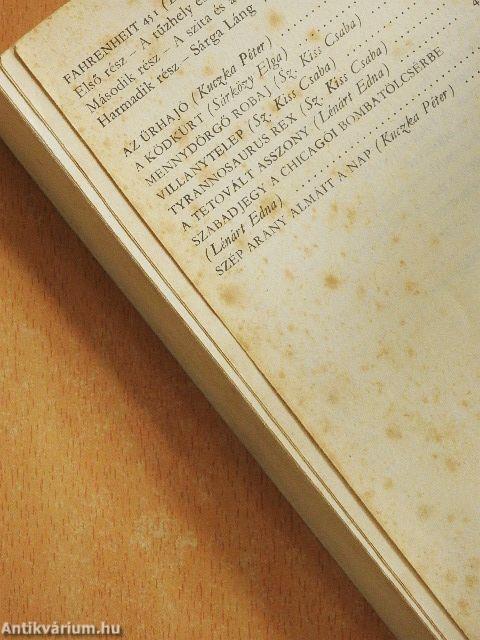 FAHRENHEIT 451
Első rész – A tűzhely és
Második rész – A szita és a
Harmadik rész – Sárga Láng
AZ ŰRHAJÓ (Kuczka Péter)
A KÖDKÜRT (Sárközy Elga)
MENNYDÖRGŐ ROBAJ (Sz. Kiss Csaba)
VILLANYTELEP (Sz. Kiss Csaba)
TYRANNOSAURUS REX (Sz. Kiss Csaba)
A TETOVÁLT ASSZONY (Lénárt Edna)
SZABADJEGY A CHICAGÓI BOMBATÖLCSÉRBE
(Lénárt Edna)
SZÉP ARANY ALMÁIT A NAP (Kuczka Péter)
Antikvárium.hu